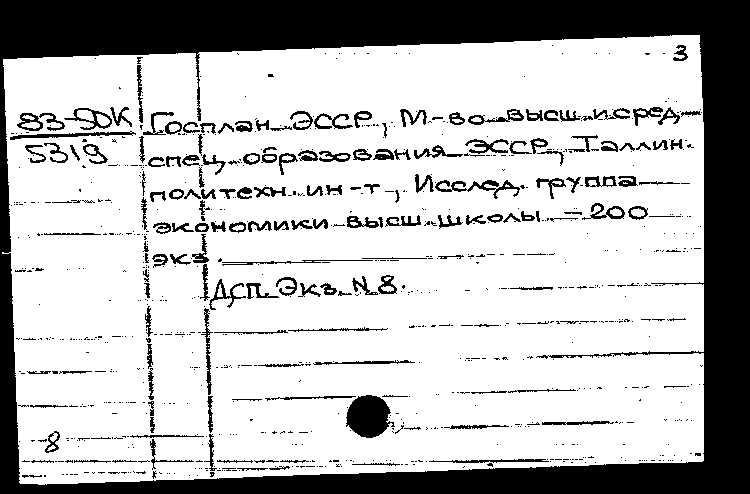 3
83-50К Госплан ЭССР, М-во высш. и сред.
5319 спец. образования ЭССР, Таллин.
политехн. ин-т, Исслед. группа
экономики высш. школы - 200
экз.
ДСП. Экз. N 8.
8